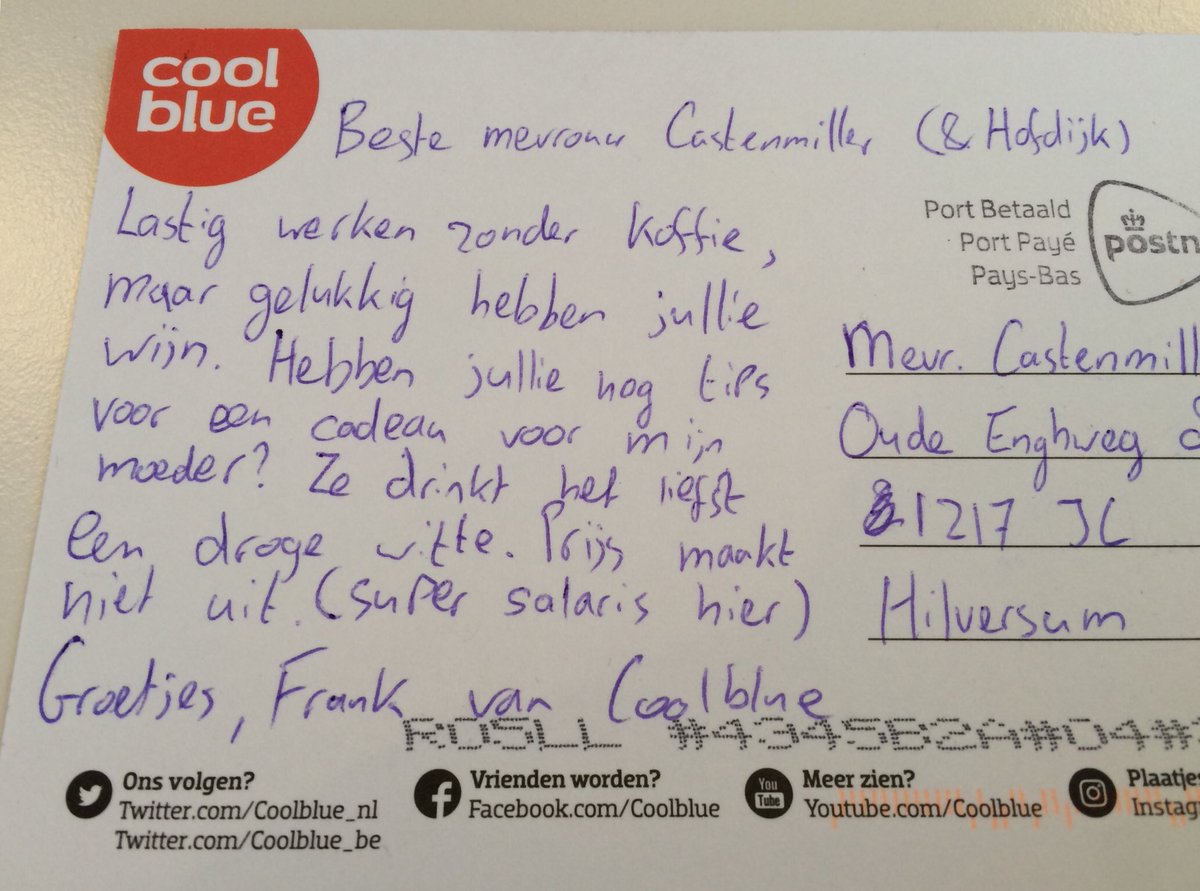 cool
blue
Beste mevrouw Castenmiller (& Hofdijk)
Lastig werken zonder koffie,
maar gelukkig hebben jullie
wijn. Hebben jullie nog tips
voor een cadeau voor mijn
moeder? Ze drinkt het liefst
een droge witte. Prijs maakt
niet uit. (super salaris hier)
Groetjes, Frank van Coolblue
Port Betaald
Port Payé
Pays-Bas
postn
Mevr. Castenmill
Oude Enghweg
1217 JC
Hilversum
ROSLL #4345B2A#04#
Ons volgen?
Twitter.com/Coolblue_nl
Twitter.com/Coolblue_be
Vrienden worden?
Facebook.com/Coolblue
You
Tube
Meer zien?
Youtube.com/Coolblue
Plaatjes
Instag